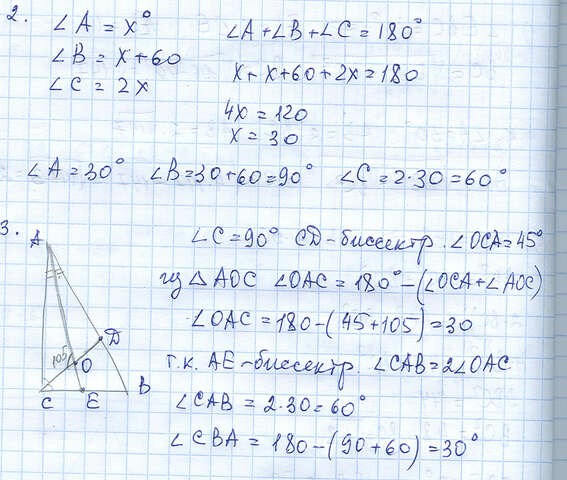 2. ∠A = x°
∠B = x+60
∠C = 2x
∠A+∠B+∠C=180°
x+x+60+2x=180
4x=120
x=30
∠A=30° ∠B=30+60=90° ∠C=2·30=60°
3.
A
D
105
O
C E B
∠C=90° CD-биссектр. ∠OCA=45°
из △AOC ∠OAC=180°-(∠OCA+∠AOC)
∠OAC=180-(45+105)=30
т.к. AE-биссектр. ∠CAB=2∠OAC
∠CAB=2·30=60°
∠CBA=180-(90+60)=30°